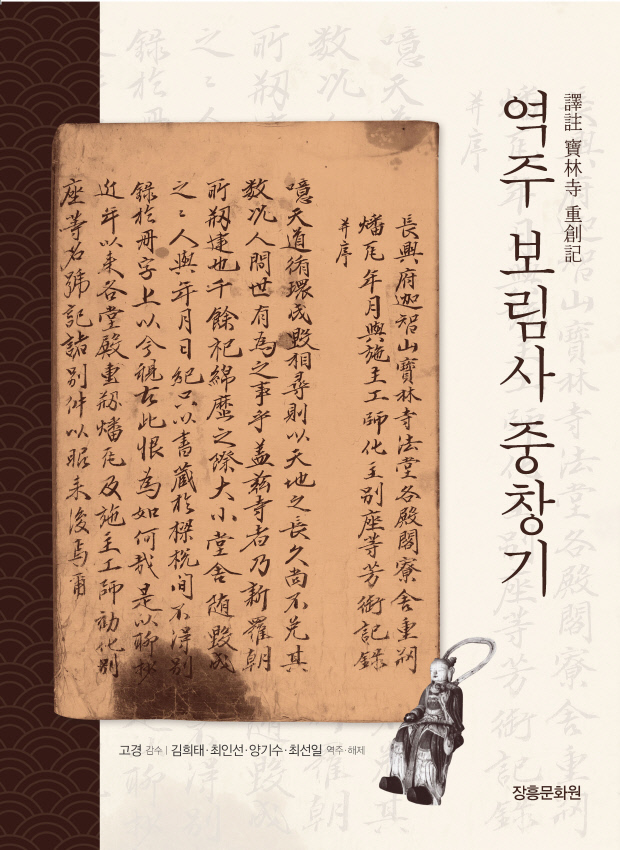 譯註 寶林寺 重創記
역주 보림사 중창기
長興府迦智山寶林寺法堂各殿閣寮舍重刱
燔瓦年月與施主工師化主別座等芳銜記錄
并序
噫天道循環成毀相尋則以天地之長久尚不免其
數况人間世有為之事乎盖玆寺者乃新羅朝
所刱建也千餘祀綿歷之際大小堂舍随毀成
之〻人與年月日紀只以書藏於樑棁间不得別
錄於冊字上以今視古此恨為如何哉是以聊抄
近年以来各堂殿重刱燔瓦及施主工師勸化別
座等名號記諸別件以昭来後焉爾
고경 감수 | 김희태·최인선·양기수·최선일 역주·해제
장흥문화원